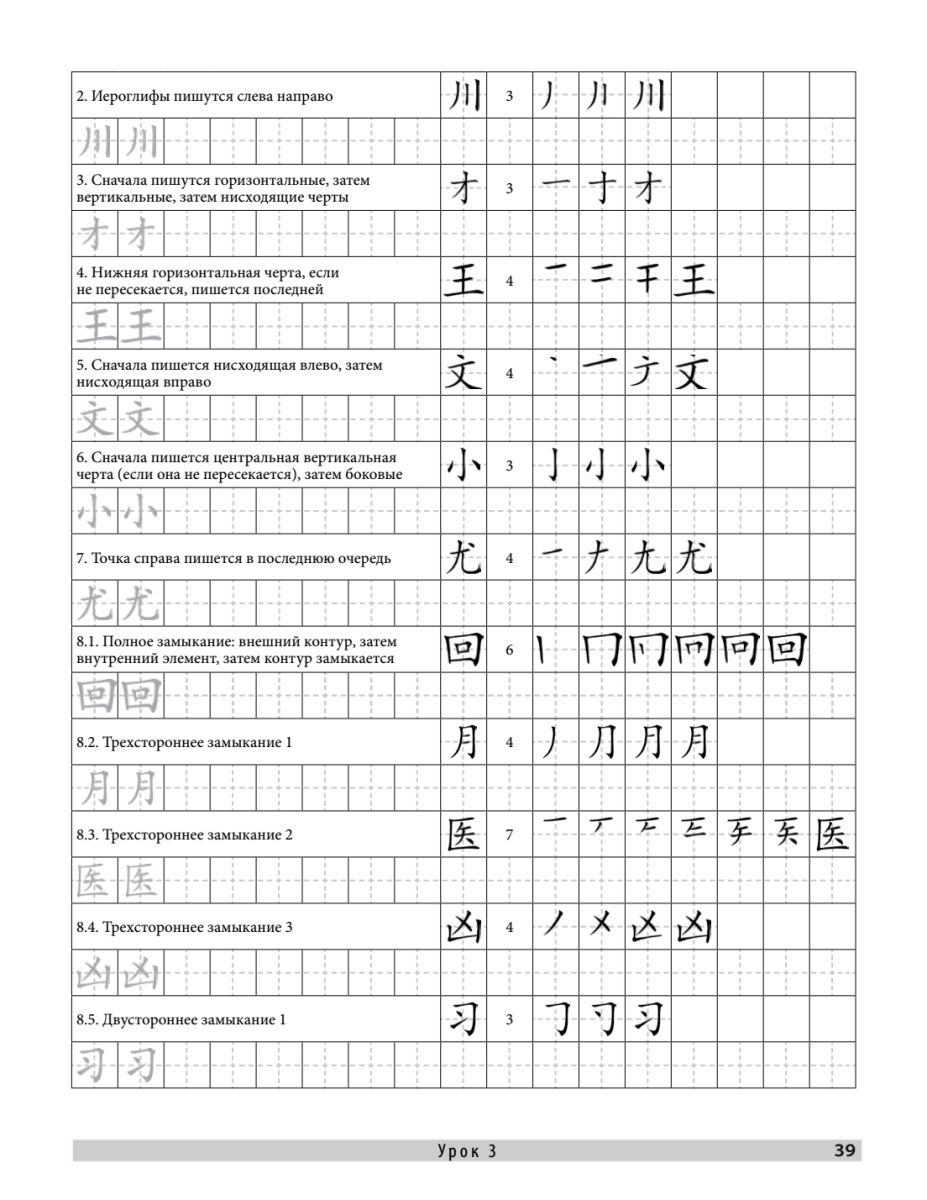 2. Иероглифы пишутся слева направо 川 3 丿 川
川 川
3. Сначала пишутся горизонтальные, затем
вертикальные, затем нисходящие черты 才 3 一 十 才
才 才
4. Нижняя горизонтальная черта, если
не пересекается, пишется последней 王 4 一 二 干 王
王 王
5. Сначала пишется нисходящая влево, затем
нисходящая вправо 文 4 丶 亠 文
文 文
6. Сначала пишется центральная вертикальная
черта (если она не пересекается), затем боковые 小 3 亅 小
小 小
7. Точка справа пишется в последнюю очередь 尤 4 一 ナ 尢 尤
尤 尤
8.1. Полное замыкание: внешний контур, затем
внутренний элемент, затем контур замыкается 回 6 丨 冂 回
回 回
8.2. Трехстороннее замыкание 1 月 4 丿 月
月 月
8.3. Трехстороннее замыкание 2 医 7 一 医
医 医
8.4. Трехстороннее замыкание 3 凶 4 丿 乂 凶
凶 凶
8.5. Двустороннее замыкание 1 习 3 习
习 习
Урок 3 39